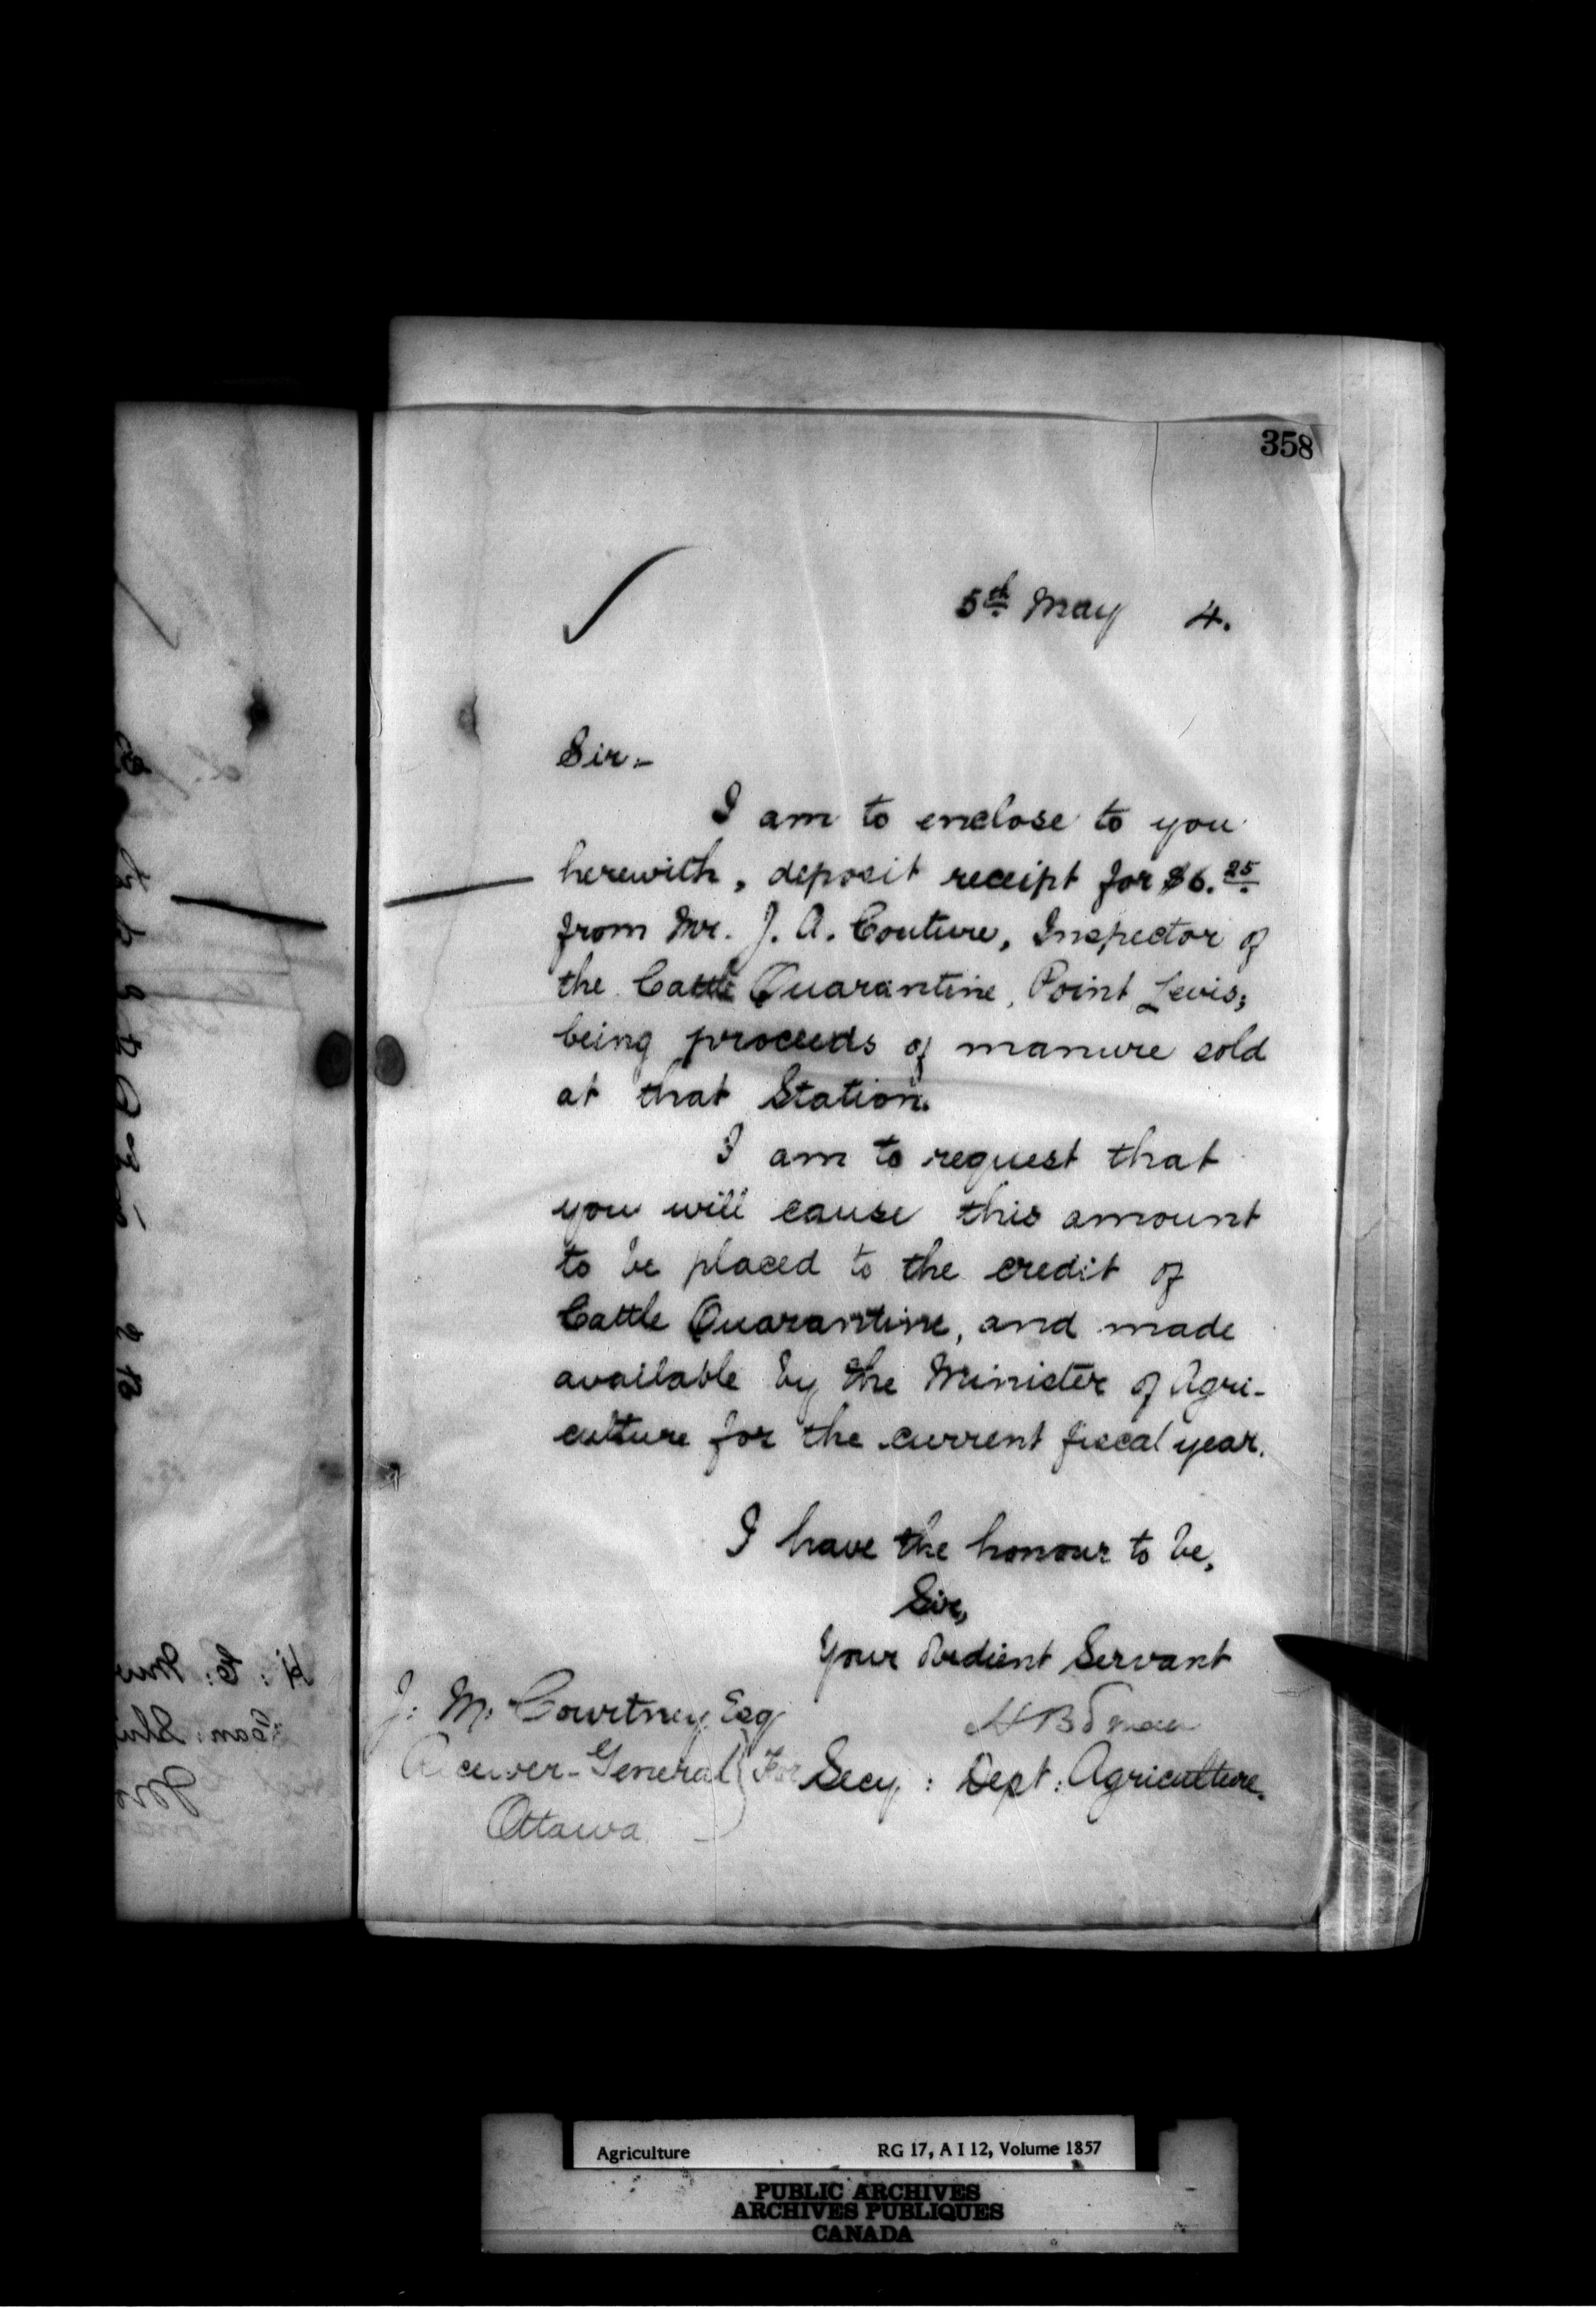 358
5th May 4.
Sir:-
I am to enclose to you
herewith, deposit receipt for $6.25
from Mr. J. A. Couture, Inspector of
the Cattle Quarantine, Point Levis,
being proceeds of manure sold
at that Station.
I am to request that
you will cause this amount
to be placed to the credit of
Cattle Quarantine, and made
available by the Minister of Agri-
culture for the current fiscal year.
I have the honour to be,
Sir,
Your Obedient Servant
J: M: Courtney Esq
Receiver-General
Ottawa
For Secy: Dept: Agriculture.
Agriculture RG 17, A I 12, Volume 1857
PUBLIC ARCHIVES
ARCHIVES PUBLIQUES
CANADA